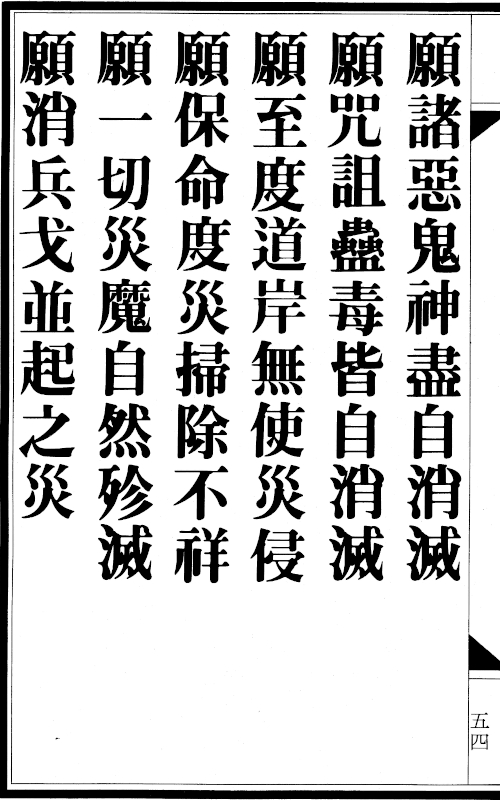 願諸惡鬼神盡自消滅
願咒詛蠱毒皆自消滅
願至度道岸無使災侵
願保命度災掃除不祥
願一切災魔自然殄滅
願消兵戈並起之災
五四